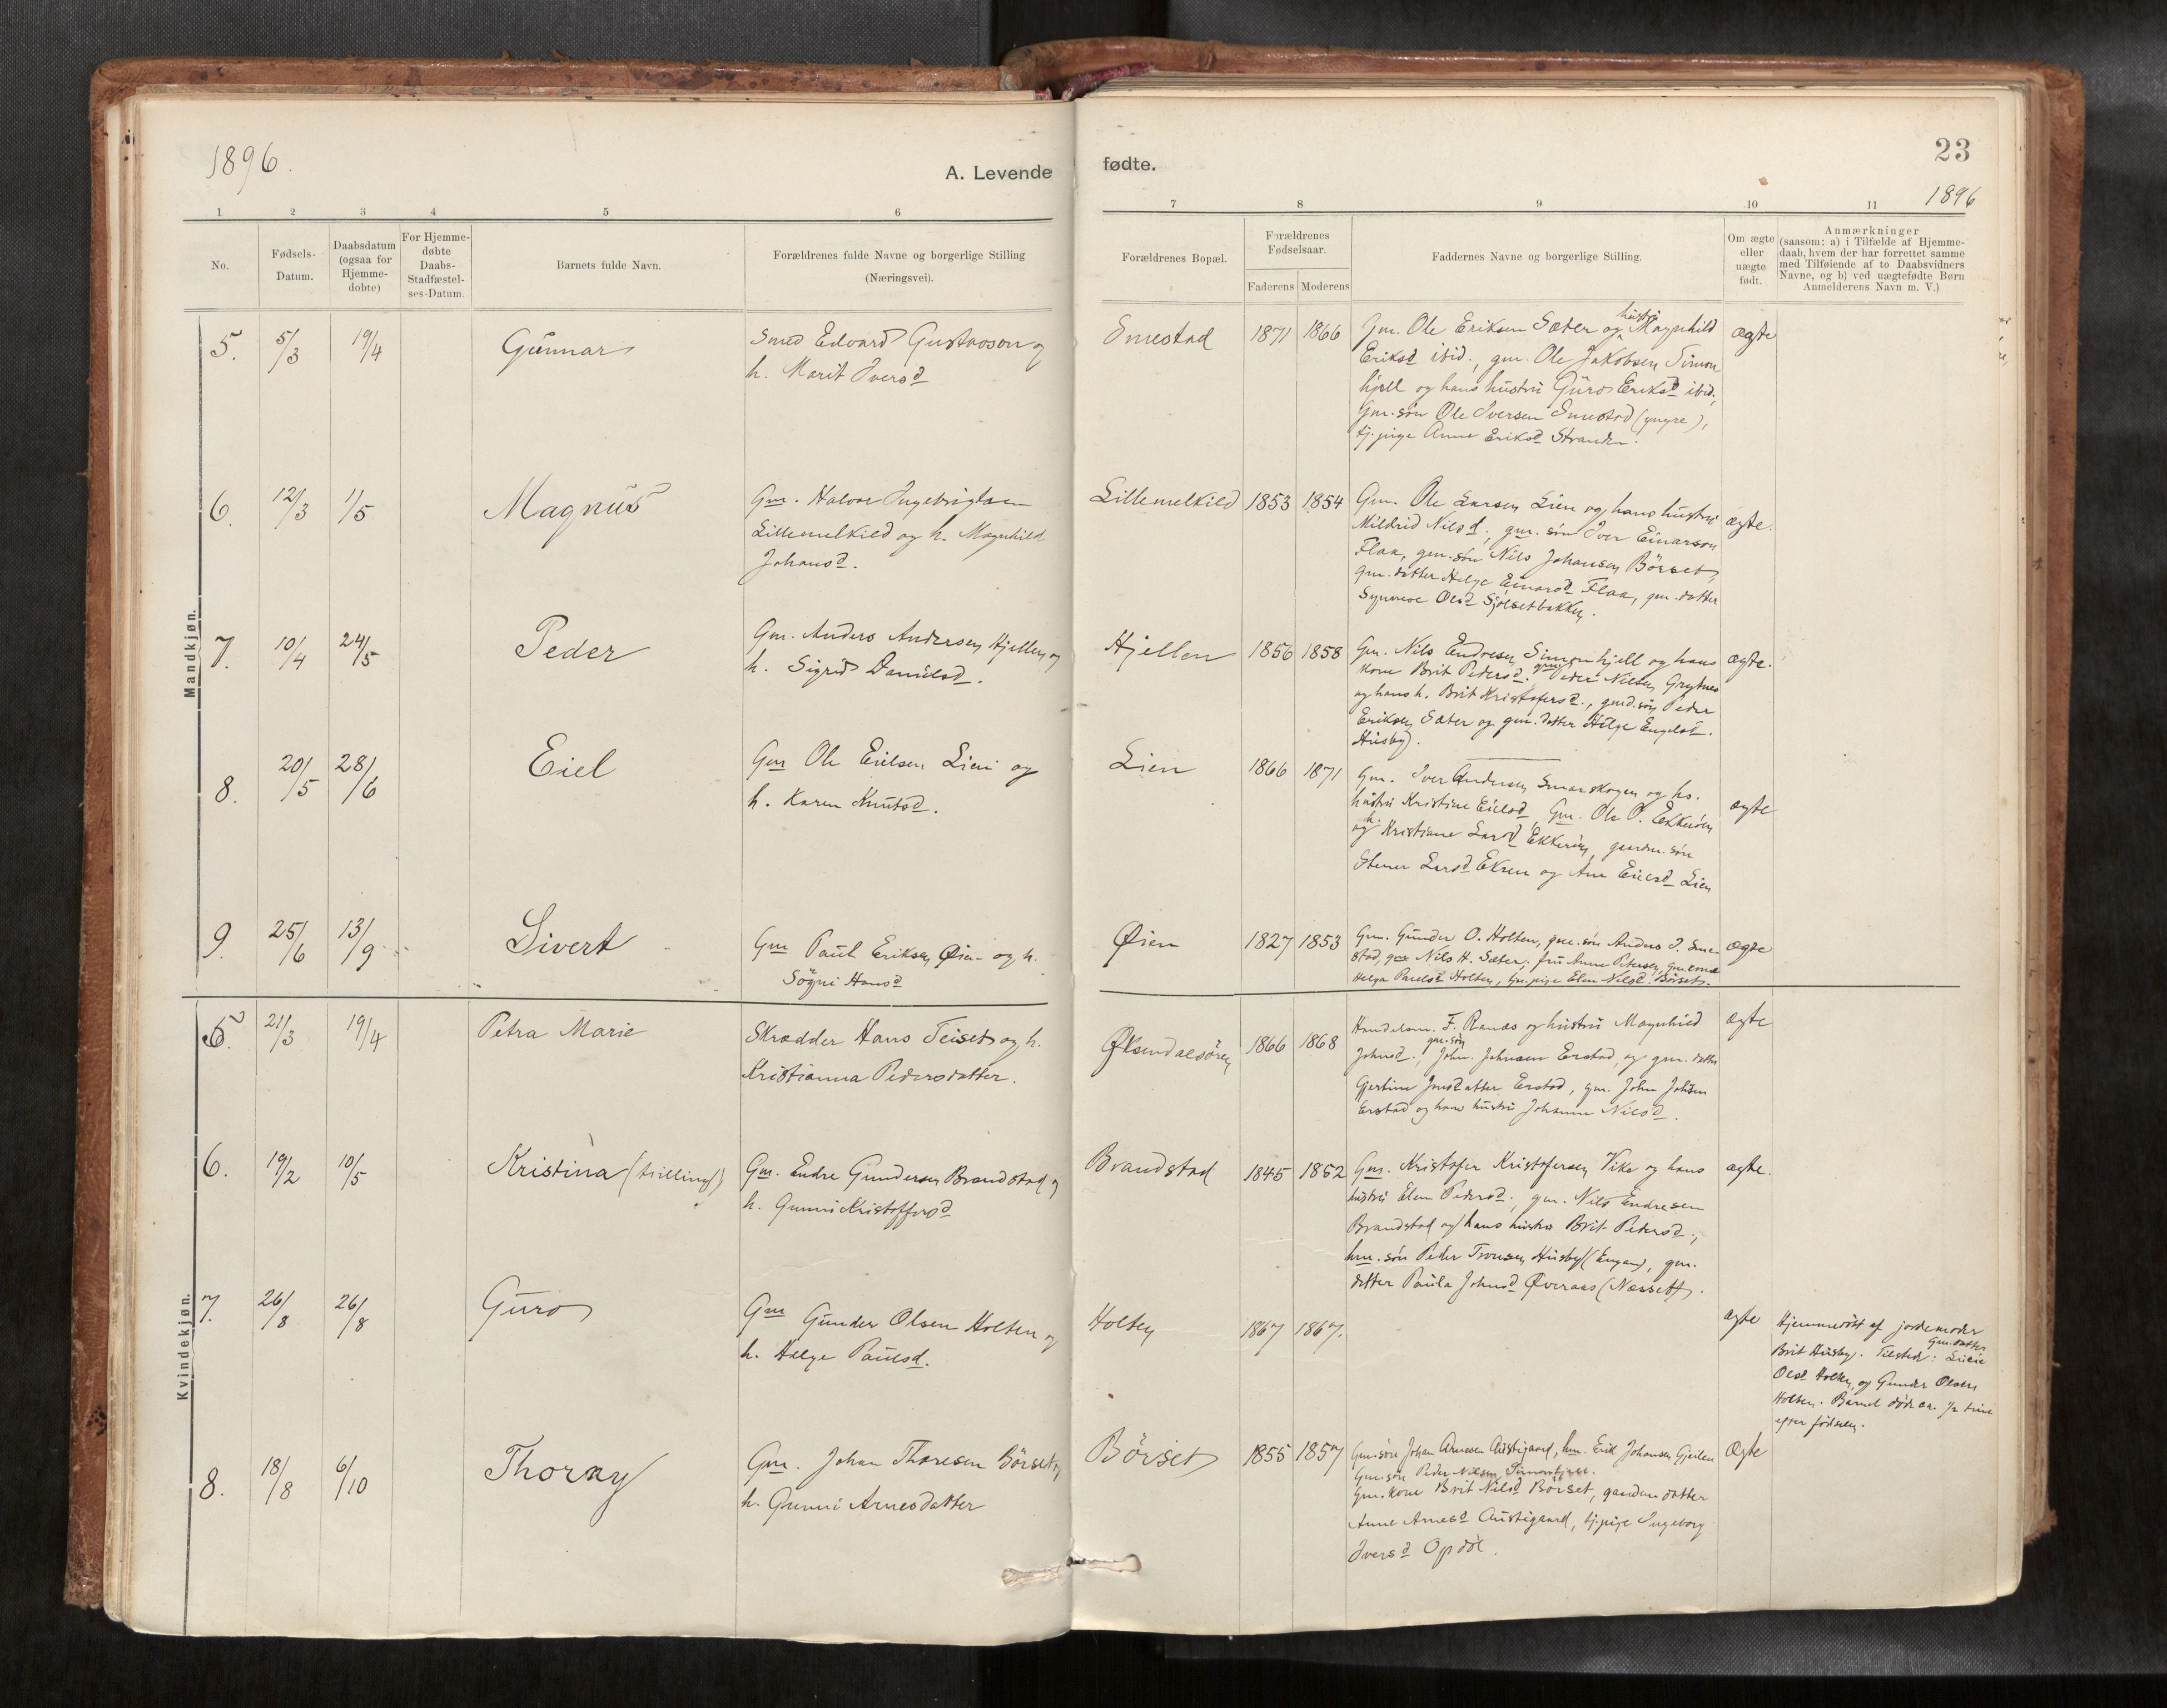 1896.
A. Levende
fødte.
23
1896
1 2 3 4 5 6
7 8 9 10 11
No.
Fødsels-
Datum.
Daabsdatum
(ogsaa for
Hjemme-
døbte)
For Hjemme-
døbte
Daabs-
Stadfæstel-
ses-Datum.
Barnets fulde Navn.
Forældrenes fulde Navne og borgerlige Stilling
(Næringsvei).
Forældrenes Bopæl.
Forældrenes
Fødselsaar.
Faderens Moderens
Faddernes Navne og borgerlige Stilling.
Om ægte
eller
uægte
født.
Anmærkninger
(saasom: a) i Tilfælde af Hjemme-
daab, hvem der har forrettet samme
med Tilføiende af to Daabsvidners
Navne, og b) ved uægtefødte Børn
Anmelderens Navn m. V.)
Mandkjøn.
5. 5/3 19/4 Gunnar
Smed Edvard Gustavson og
h. Marit Iversd
Smestad 1871 1866
Gm. Ole Eriksen Sæter og hustru Magnhild
Eriksd ibid., gm. Ole Jakobsen Simon-
hjell og hans hustru Guro Eriksd ibid.,
Gm. søn Ole Iversen Smestad (yngre),
tj. pige Anne Eriksd Stranden.
ægte
6. 12/3 1/5 Magnus
Gm. Halvor Ingebrigtsen
Lillemelkild og h. Magnhild
Johansd.
Lillemelkild 1853 1854
Gm. Ole Larsen Lien og hans hustru
Mildrid Nilsd., gm. søn Iver Einarson
Flaa, gm. søn Nils Johansen Börset,
gm. datter Helge Einarsd Flaa, gm. datter
Synnøve Olsd Sjölsetbakken.
ægte.
7. 10/4 24/5 Peder
Gm. Anders Andersen Hjellen og
h. Sigrid Danielsd.
Hjellen 1856 1858
Gm. Nils Endresen Simonhjell og hans
kone Brit Pedersd. gm. Peder Nilsen Grytnes
og hans h. Brit Kristofersd., gmd. søn Peder
Eriksen Sæter og gm. datter Helge
Husby.
ægte.
8. 20/5 28/6 Eiel
Gm Ole Eielsen Lien og
h. Karen Knutsd.
Lien 1866 1871
Gm. Iver Andersen og hs.
hustru Kristine Eielsd, Gm. Ole O. Ekkerøen
og h. Kristiane Larsd Ekkerøen, gaardm. søn
Stener Larsd Ekren og Ane Eielsd Lien
ægte
9. 25/6 13/9 Sivert
Gm Paul Eriksen Øien og h.
Sögni Hansd
Øien 1827 1853
Gm. Gunder O. Holten, gm. søn Anders I. Sme-
stad, gm Nils H. Sæter, fru Anne Petersen, gm. kone
Helga Paulsd Holten, tj. pige Elen Nilsd. Börset.
ægte
Kvindekjøn.
5. 21/3 19/4 Petra Marie
Skrædder Hans Teiset og h.
Kristianna Pedersdatter.
Øksendalsören 1866 1868
Handelsm. F. Ranæs og hustru Magnhild
Johnsd., gm. søn John Johnsen Erstad, og gm. datter
Gjertine Jonsdatter Erstad, gm. John Johsen
Erstad og hans hustru Johanne Nilsd.
ægte
6. 19/2 10/5 Kristina (trilling)
Gm. Endre Gundersen Brandstad og
h. Gunni Kristoffersd
Brandstad 1845 1852
Gm. Kristofer Kristofersen Vike og hans
hustru Elen Pedersd., gm. Nils Endresen
Brandstad og hans hustru Brit Pedersd.,
hm. søn Peder Tronsen Husby (Engan), gm.
datter Paula Johnsd Øveraas (Næsset).
ægte.
7. 26/8 26/8 Guro
Gm Gunder Olsen Holten og
h. Helge Paulsd.
Holten 1867 1867.
ægte
Hjemmedöbt af jordemoder
Brit Husby. Tilstede: Gm. datter
Olsd Holten, og Gunder Olsen
Holten. Barnet døde ca. 1/2 time
efter fødselen.
8. 18/8 6/10 Thorny
Gm. Johan Thoresen Börset og
h. Gunni Arnesdatter
Börset 1855 1857
Gm. søn Johan Arnesen Austigaard, hm. Erik Johansen Gjeilen
Gm. søn Peder Nilsen Simonhjell.
Gm. kone Brit Nilsd Börset, gaardm. datter
Anne Arnesd Austigaard, tj. pige Ingeborg
Iversd Opdöl.
Ægte